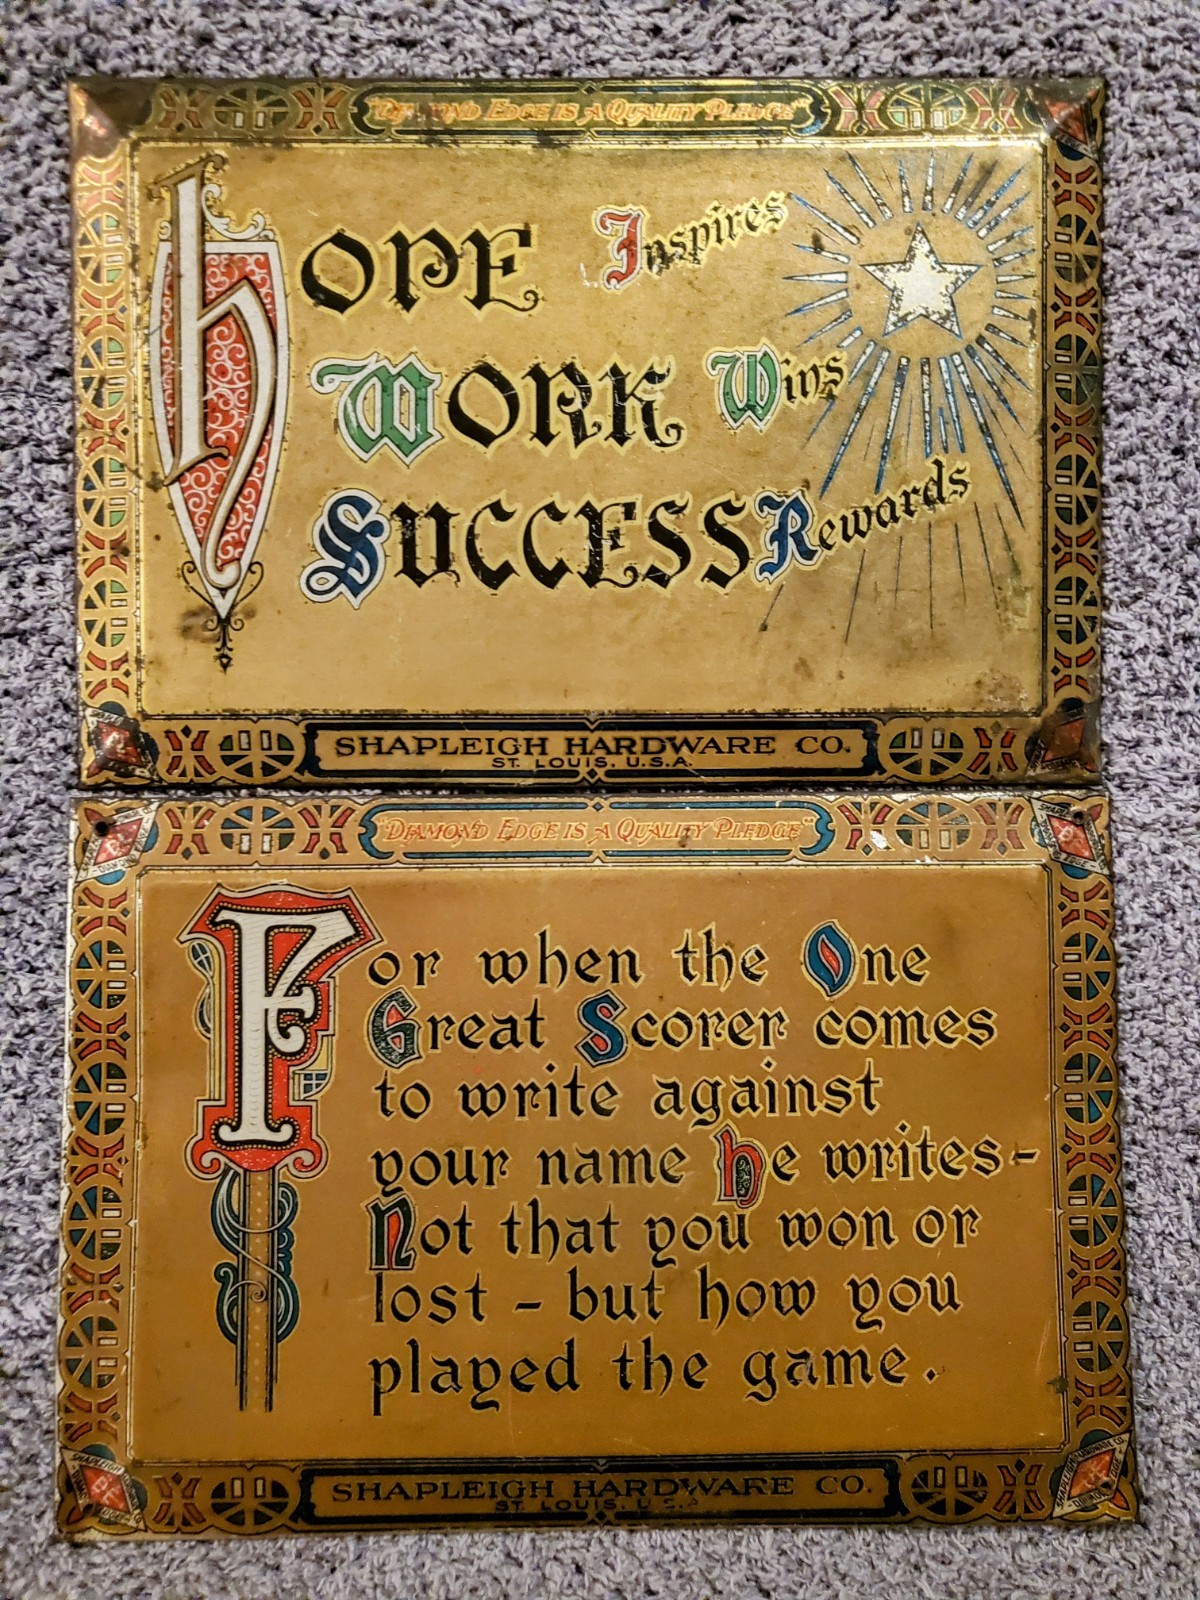 "DIAMOND EDGE IS A QUALITY PLEDGE"
hOPE Inspires
WORK Wins
SUCCESS Rewards
SHAPLEIGH HARDWARE CO.
ST. LOUIS, U.S.A.
"DIAMOND EDGE IS A QUALITY PLEDGE"
For when the One
Great Scorer comes
to write against
your name he writes-
Not that you won or
lost - but how you
played the game.
SHAPLEIGH HARDWARE CO.
ST. LOUIS, U.S.A.